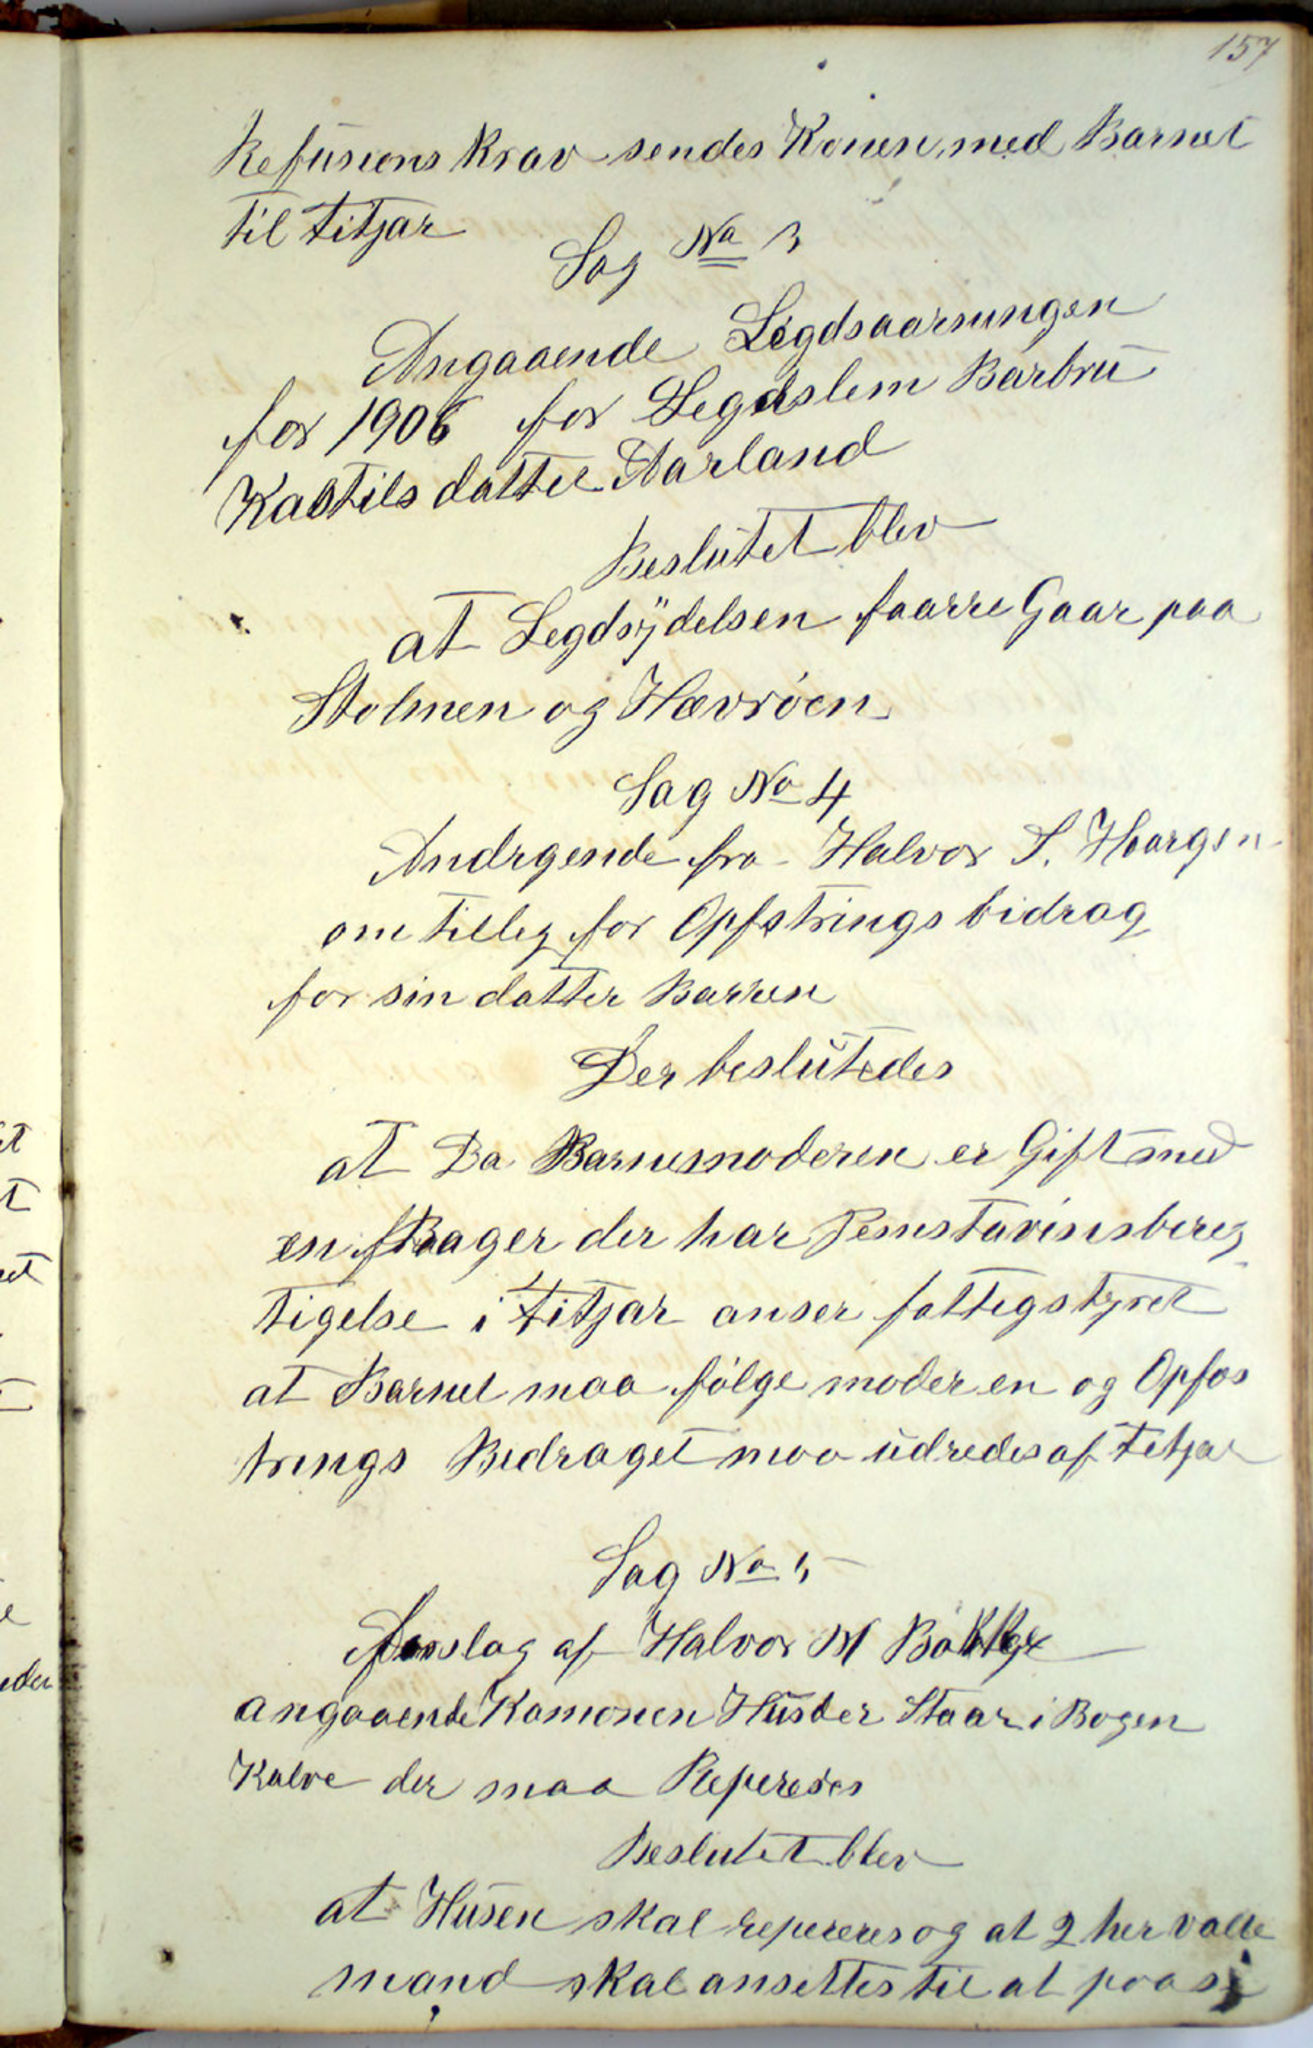 157
Refusions Krav sendes Konen, med Barnet
til Fitjar
Sag No 3
Angaaende Legdsaarningen
for 1906 for Legdslem Barbru
Kastilsdatter Aarland
Beslutet blev
at Legdsydelsen faarre Gaar paa
Stolmen og Hævröen
Sag No 4
Andrgende fra Halvor S. Horgen
om tilleg for Opfstrings bidrag
for sin datter Barren
Der beslutedes
at Da Barnemoderen er Gift med
en Bager der har Hemstavnsbereg
tigelse i Fitjar anser fattigstyret
at Barnet maa følge moderen og Opfos
trings Bidraget maa udredes af Fitjar
Sag No 5
Forslag af Halvor M Bakke
angaaende Komonen Hus der Staar i Bogen
Kalve der maa Reperes
Beslutet blev
at Husen skal repereres og at 2 her valte
mand skal ansettes til at paase